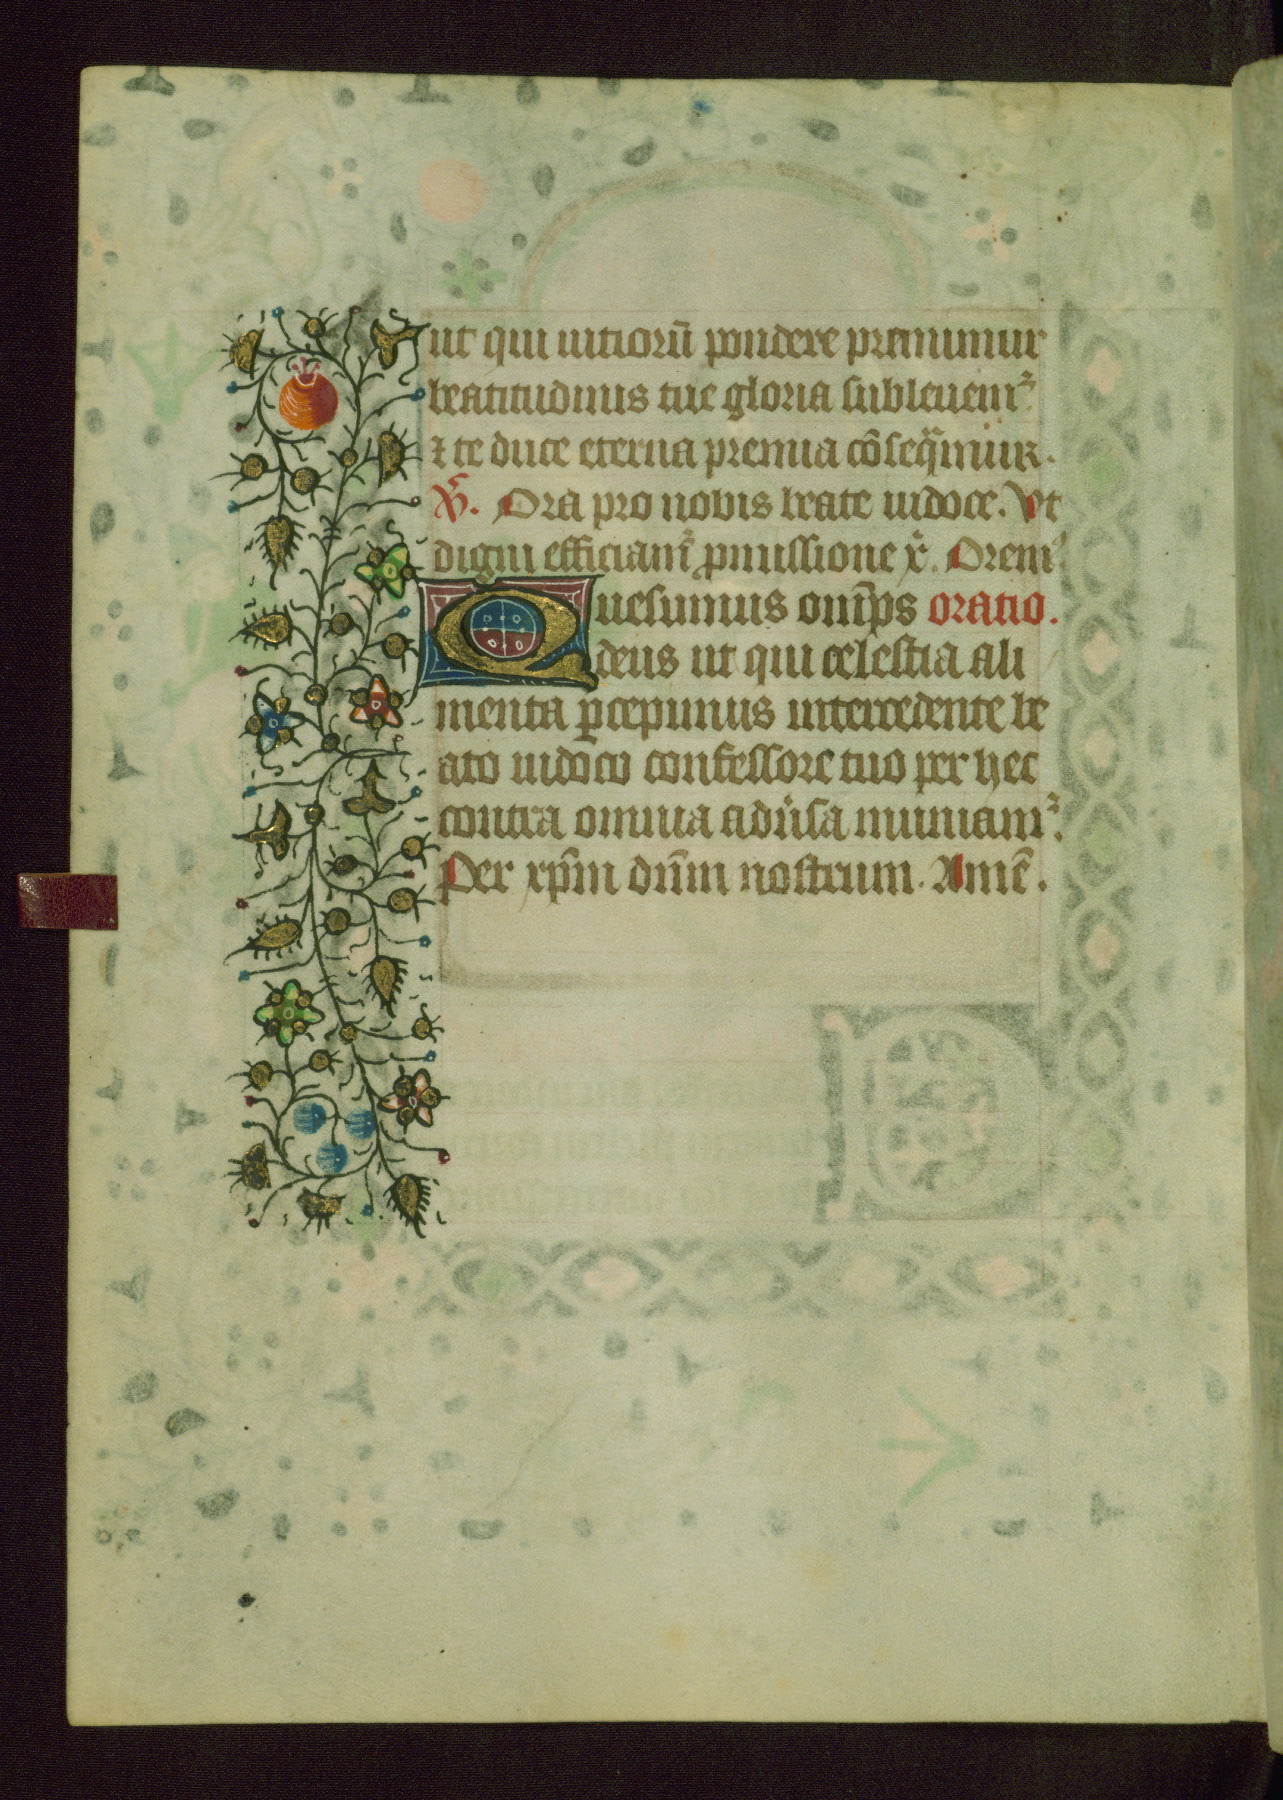 ut qui uitiorū pondere premimur
beatitudinis tue gloria subleuemꝰ
⁊ te duce eterna premia cōsequamur.
℣. Ora pro nobis beate iudoce. Vt
digni efficiam᷑ ꝓmissione x̄. Oremꝰ
Quesumus omīps oratio.
deus ut qui celestia ali
menta ꝑcepimus intercedente be
ato iudoco confessore tuo per hec
contra omnia aduʼsa muniam᷑.
Per xp̄m dn̄m nostrum. Amē.